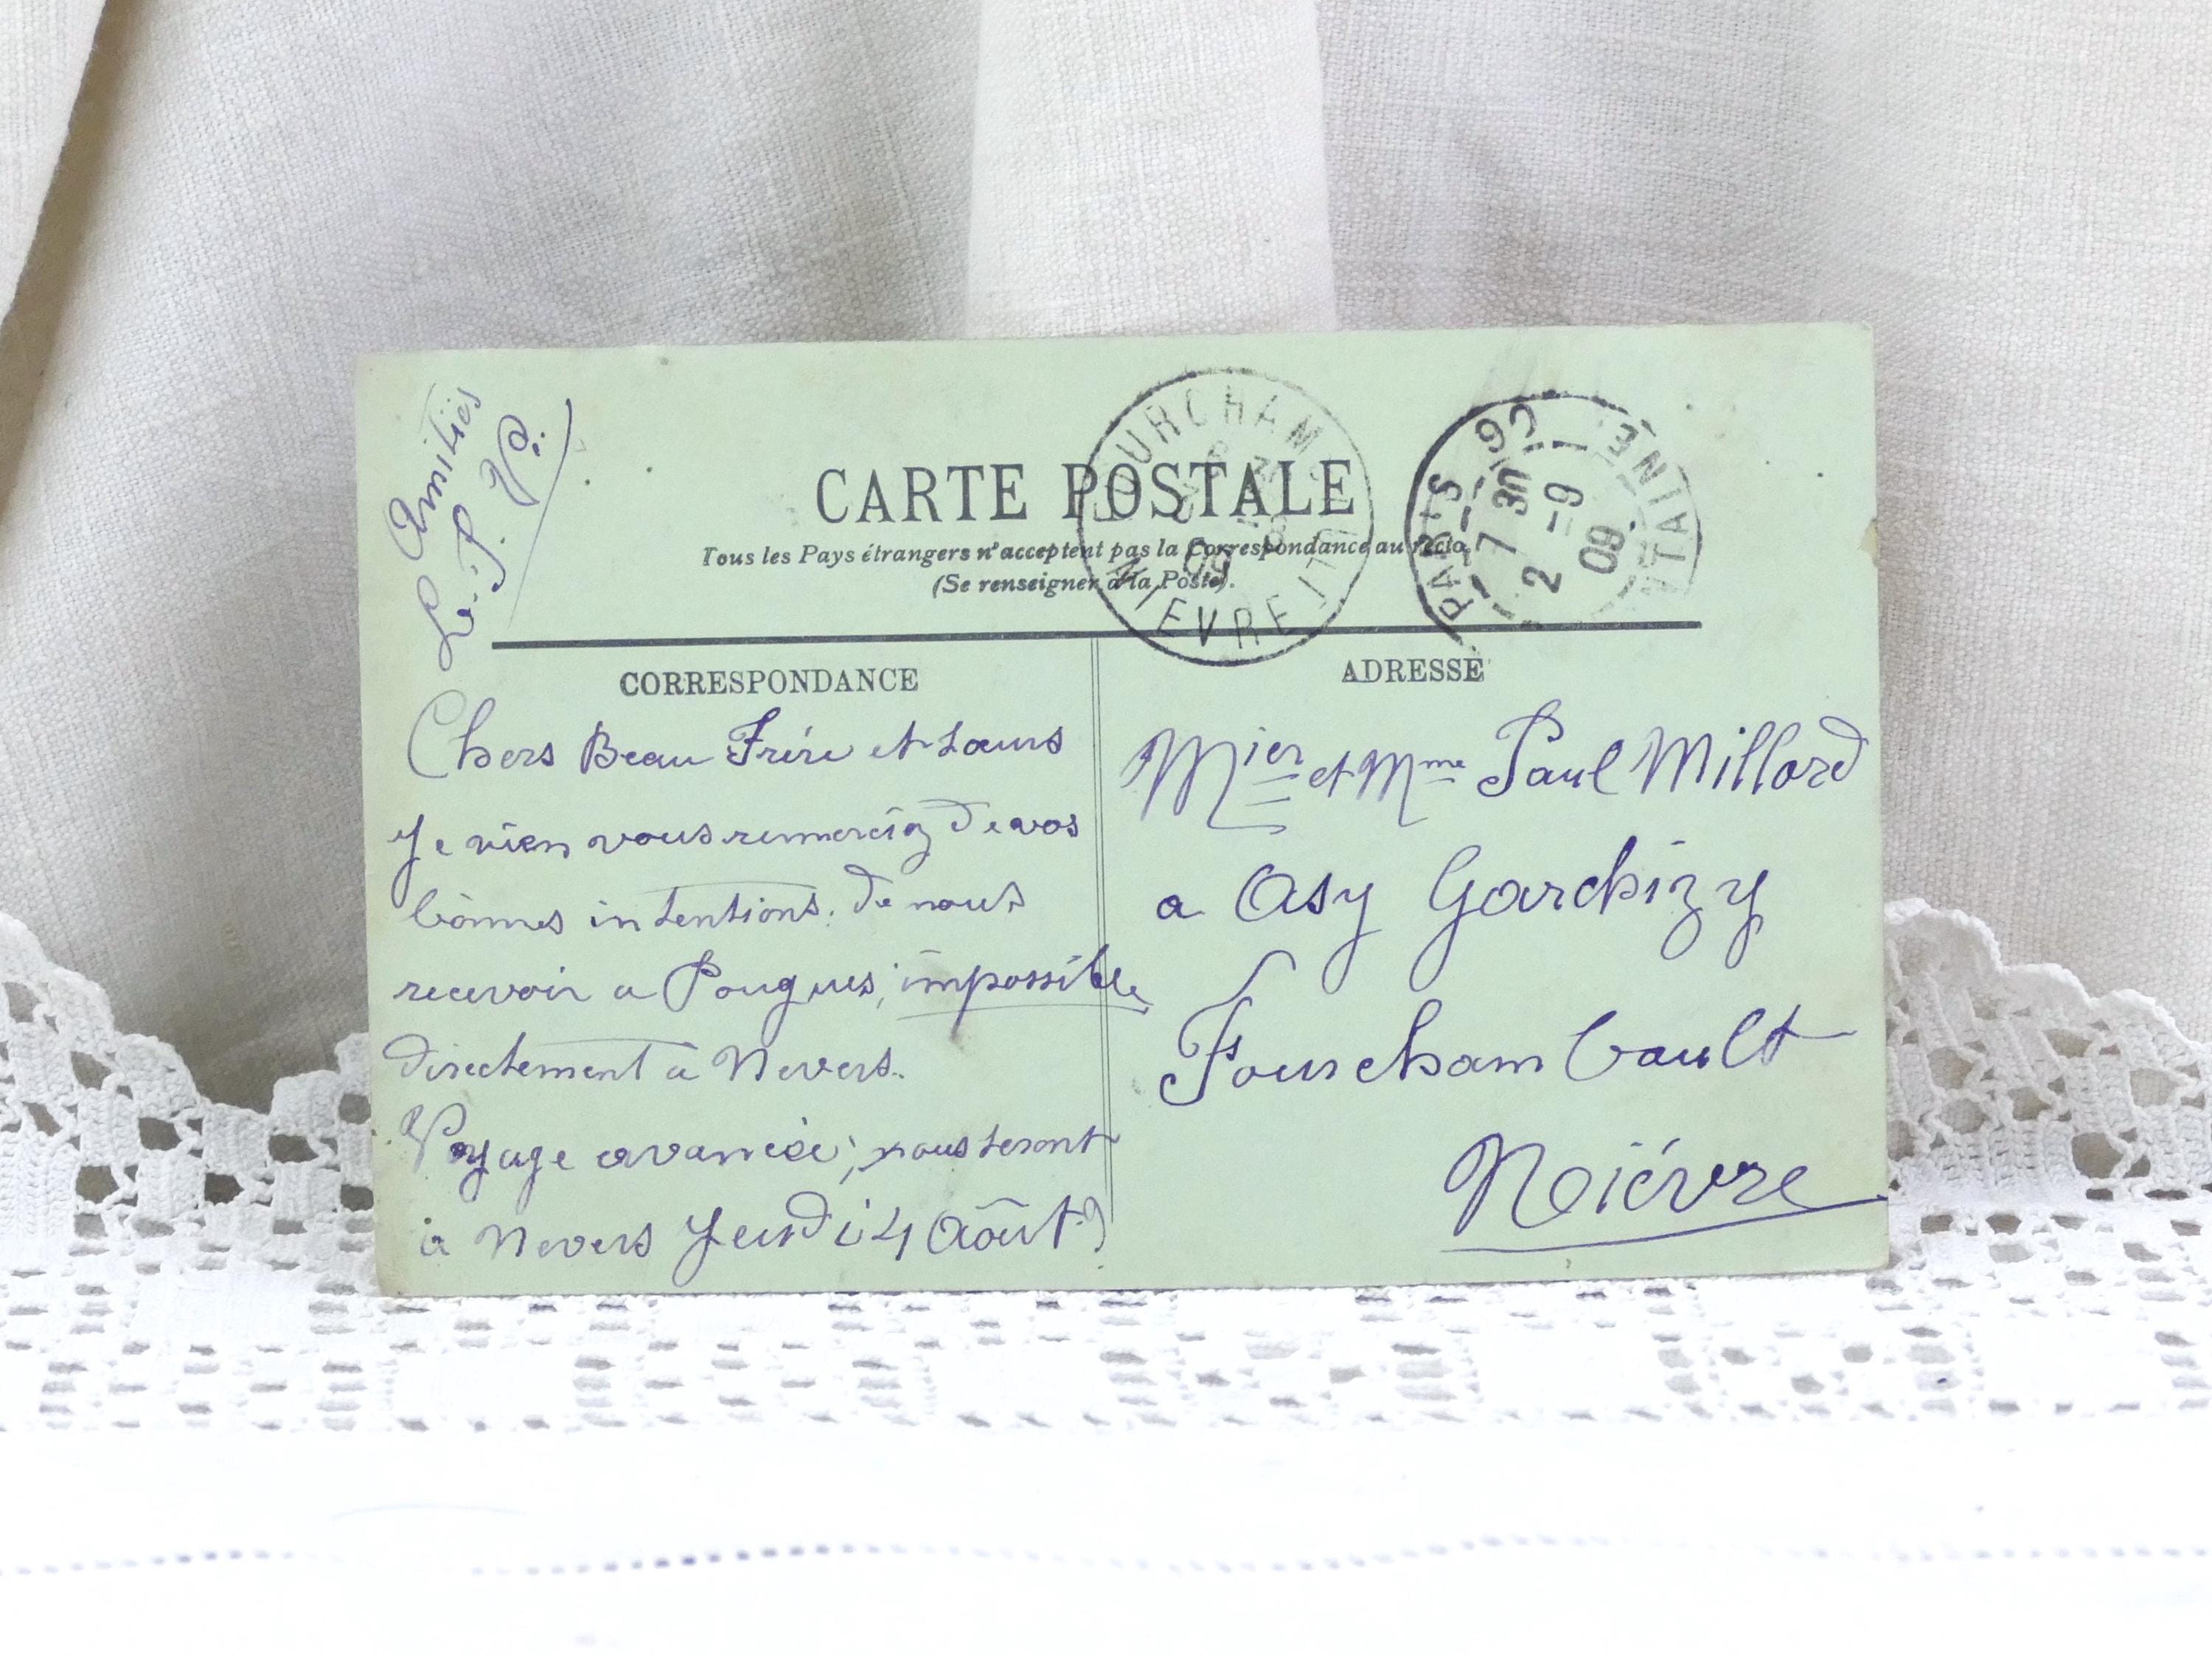 Amitiés
CARTE POSTALE
Tous les Pays étrangers n'acceptent pas la Correspondance au recto.
(Se renseigner à la Poste).
FOURCHAMBAULT
NIEVRE
09
PARIS
7 30
2 - 9
09
CORRESPONDANCE
ADRESSE
Chers Beau Frère et Sœurs
Je vien vous remerciez de vos
bonnes intentions. de nous
recevoir a Pougues; impossible
directement à Nevers.
Voyage avancée; nous seront
à Nevers Jeudi 4 Août
Mier et Mme Paul Millard
a Asy Garchizy
Fourchambault
Nièvre